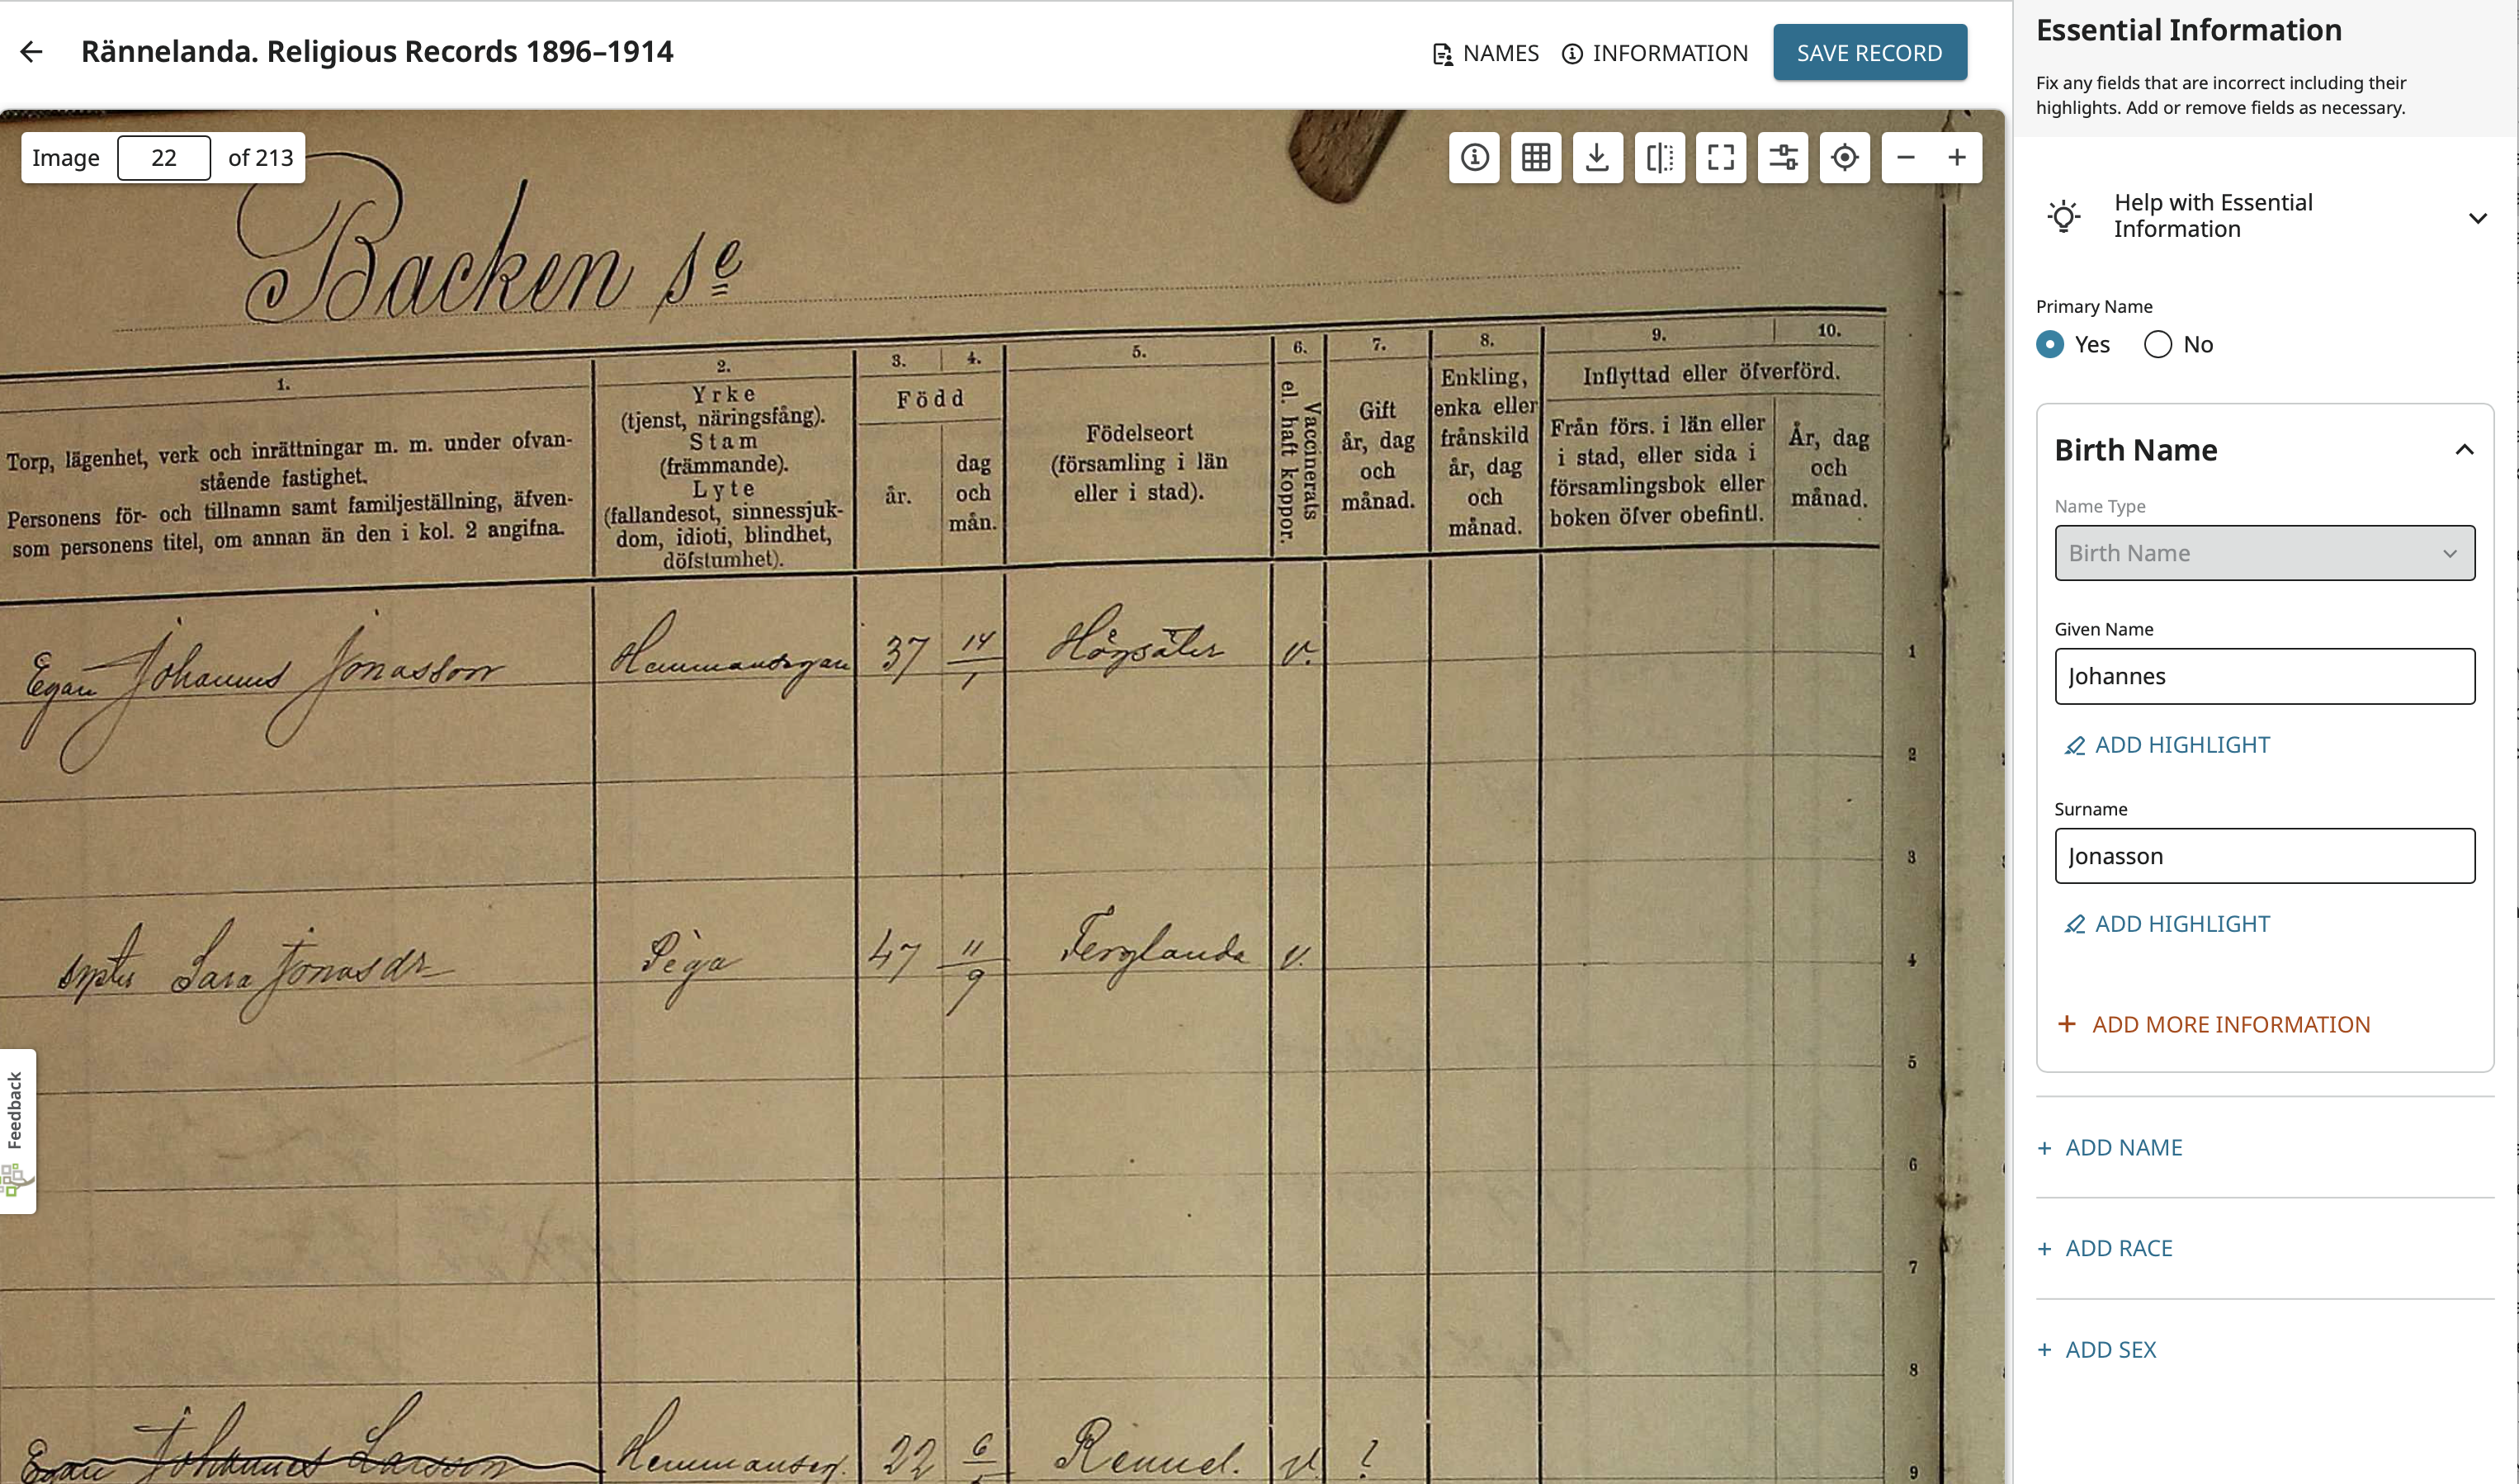 Rännelanda. Religious Records 1896–1914
NAMES
INFORMATION
SAVE RECORD
Image 22 of 213
Backen se
1.
Torp, lägenhet, verk och inrättningar m. m. under ofvan-
stående fastighet.
Personens för- och tillnamn samt familjeställning, äfven-
som personens titel, om annan än den i kol. 2 angifna.
2.
Yrke
(tjenst, näringsfång).
Stam
(främmande).
Lyte
(fallandesot, sinnessjuk-
dom, idioti, blindhet,
döfstumhet).
3. 4.
Född
år.
dag
och
mån.
5.
Födelseort
(församling i län
eller i stad).
6.
Vaccinerats
el. haft koppor.
7.
Gift
år, dag
och
månad.
8.
Enkling,
enka eller
frånskild
år, dag
och
månad.
9. 10.
Inflyttad eller öfverförd.
Från förs. i län eller
i stad, eller sida i
församlingsbok eller
boken öfver obefintl.
År, dag
och
månad.
Egan Johannes Jonasson Hemmansegan 37 14/1 Högsäter v. 1
2
3
Sara Jonasdr Piga 47 11/9 Ferglanda v. 4
5
6
7
8
Egan Johannes Larsson Hemmanseg. 22 6 Rennel. v. ? 9
Feedback
Essential Information
Fix any fields that are incorrect including their
highlights. Add or remove fields as necessary.
Help with Essential
Information
Primary Name
Yes No
Birth Name
Name Type
Birth Name
Given Name
Johannes
ADD HIGHLIGHT
Surname
Jonasson
ADD HIGHLIGHT
+ ADD MORE INFORMATION
+ ADD NAME
+ ADD RACE
+ ADD SEX